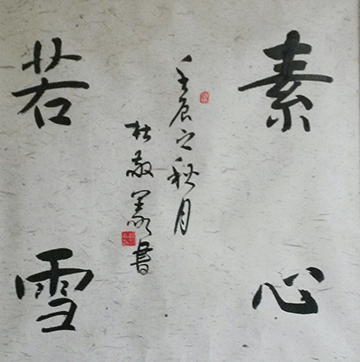 素心
若雪
壬辰之秋月
杜敬義書